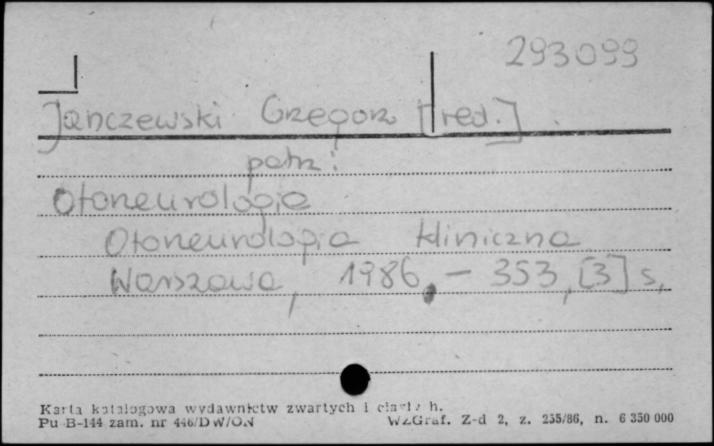 293099
Janczewski Grzegorz [red.]
patrz:
Otoneurologia
Otoneurologia kliniczna
Warszawa, 1986. – 353, [3] s.
Karta katalogowa wydawnictw zwartych i ciągłych.
Pu B-144 zam. nr 446/DW/ON WZGraf. Z-d 2, z. 255/86, n. 6 350 000